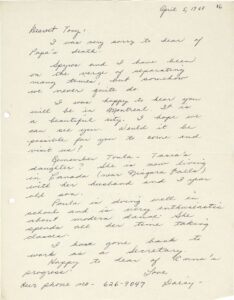 April 5, 1968
Dearest Tony:
I was very sorry to hear of
Papa's death.
Spyros and I have been
on the verge of separating
many times, but somehow
we never quite do.
I was happy to hear you
will be in Montreal. It is
a beautiful city. I hope we
can see you. Would it be
possible for you to come and
visit us?
Remember Toula - Tasia's
daughter? She is now living
in Canada (near Niagara Falls)
with her husband and 1 year
old son.
Paula is doing well in
school and is very enthusiastic
about modern dance. She
spends all her time taking
classes.
I have gone back to
work as a Secretary.
Happy to hear of
progress.
Love
Our phone no - 626-9047 Daisy.